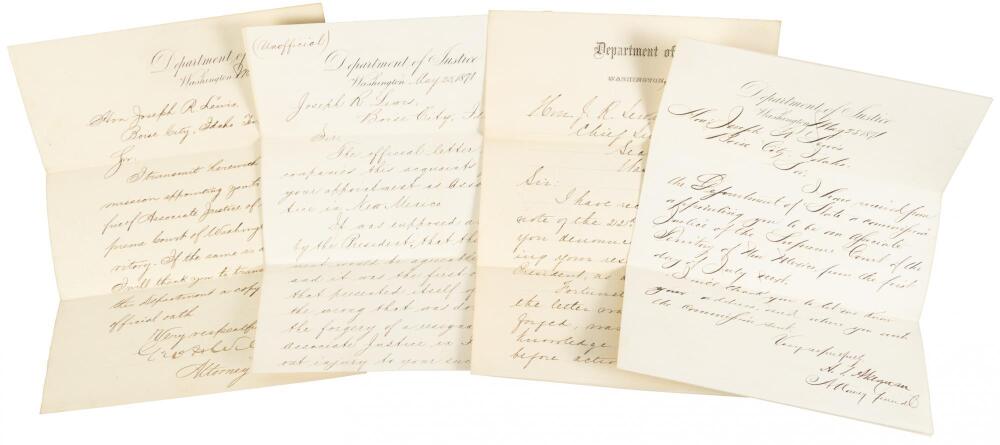 Department of
Washington
Hon Joseph R. Lewis
Boise City, Idaho
Sir.
I transmit herewith
mission appointing you to
Associate Justice of
preme Court of Washing
ritory. If the same is
I will thank you to trans
the Department a copy
official oath
Very respectful
Attorney
(Unofficial)
Department of Justice
Washington May 25, 1871
Joseph R. Lewis,
Boise City, Id
Sir
The official letter
companies this acquaints
your appointment as Asso
tice in New Mexico
It was supposed
by the President, that th
ment would be agreeable
and it was the first
that presented itself of
the wrong that was do
the forgery of a resigna
Associate Justice in
out injury to your suc
Department of
WASHINGTON,
Hon. J. R. Lew
Chief
Sea
Was
Sir:
I have rec
note of the 22d
you denounce
ing your res
President, as
Fortunat
the letter wa
forged, was
knowledge
before actio
Department of Justice
Washington May 25 1871
Hon. Joseph R. Lewis
Boise City Idaho.
Sir:
I have received from
the Department of State a commission
appointing you to be an Associate
Justice of the Supreme Court of the
Territory of New Mexico from the first
day of July next.
I will thank you to let me know
your address and when you wish
the commission sent.
Very respectfully
A. T. Akerman
Attorney General